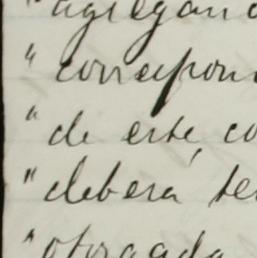 " agregan
" correspon
" de este, co
" debera te
" otorgada